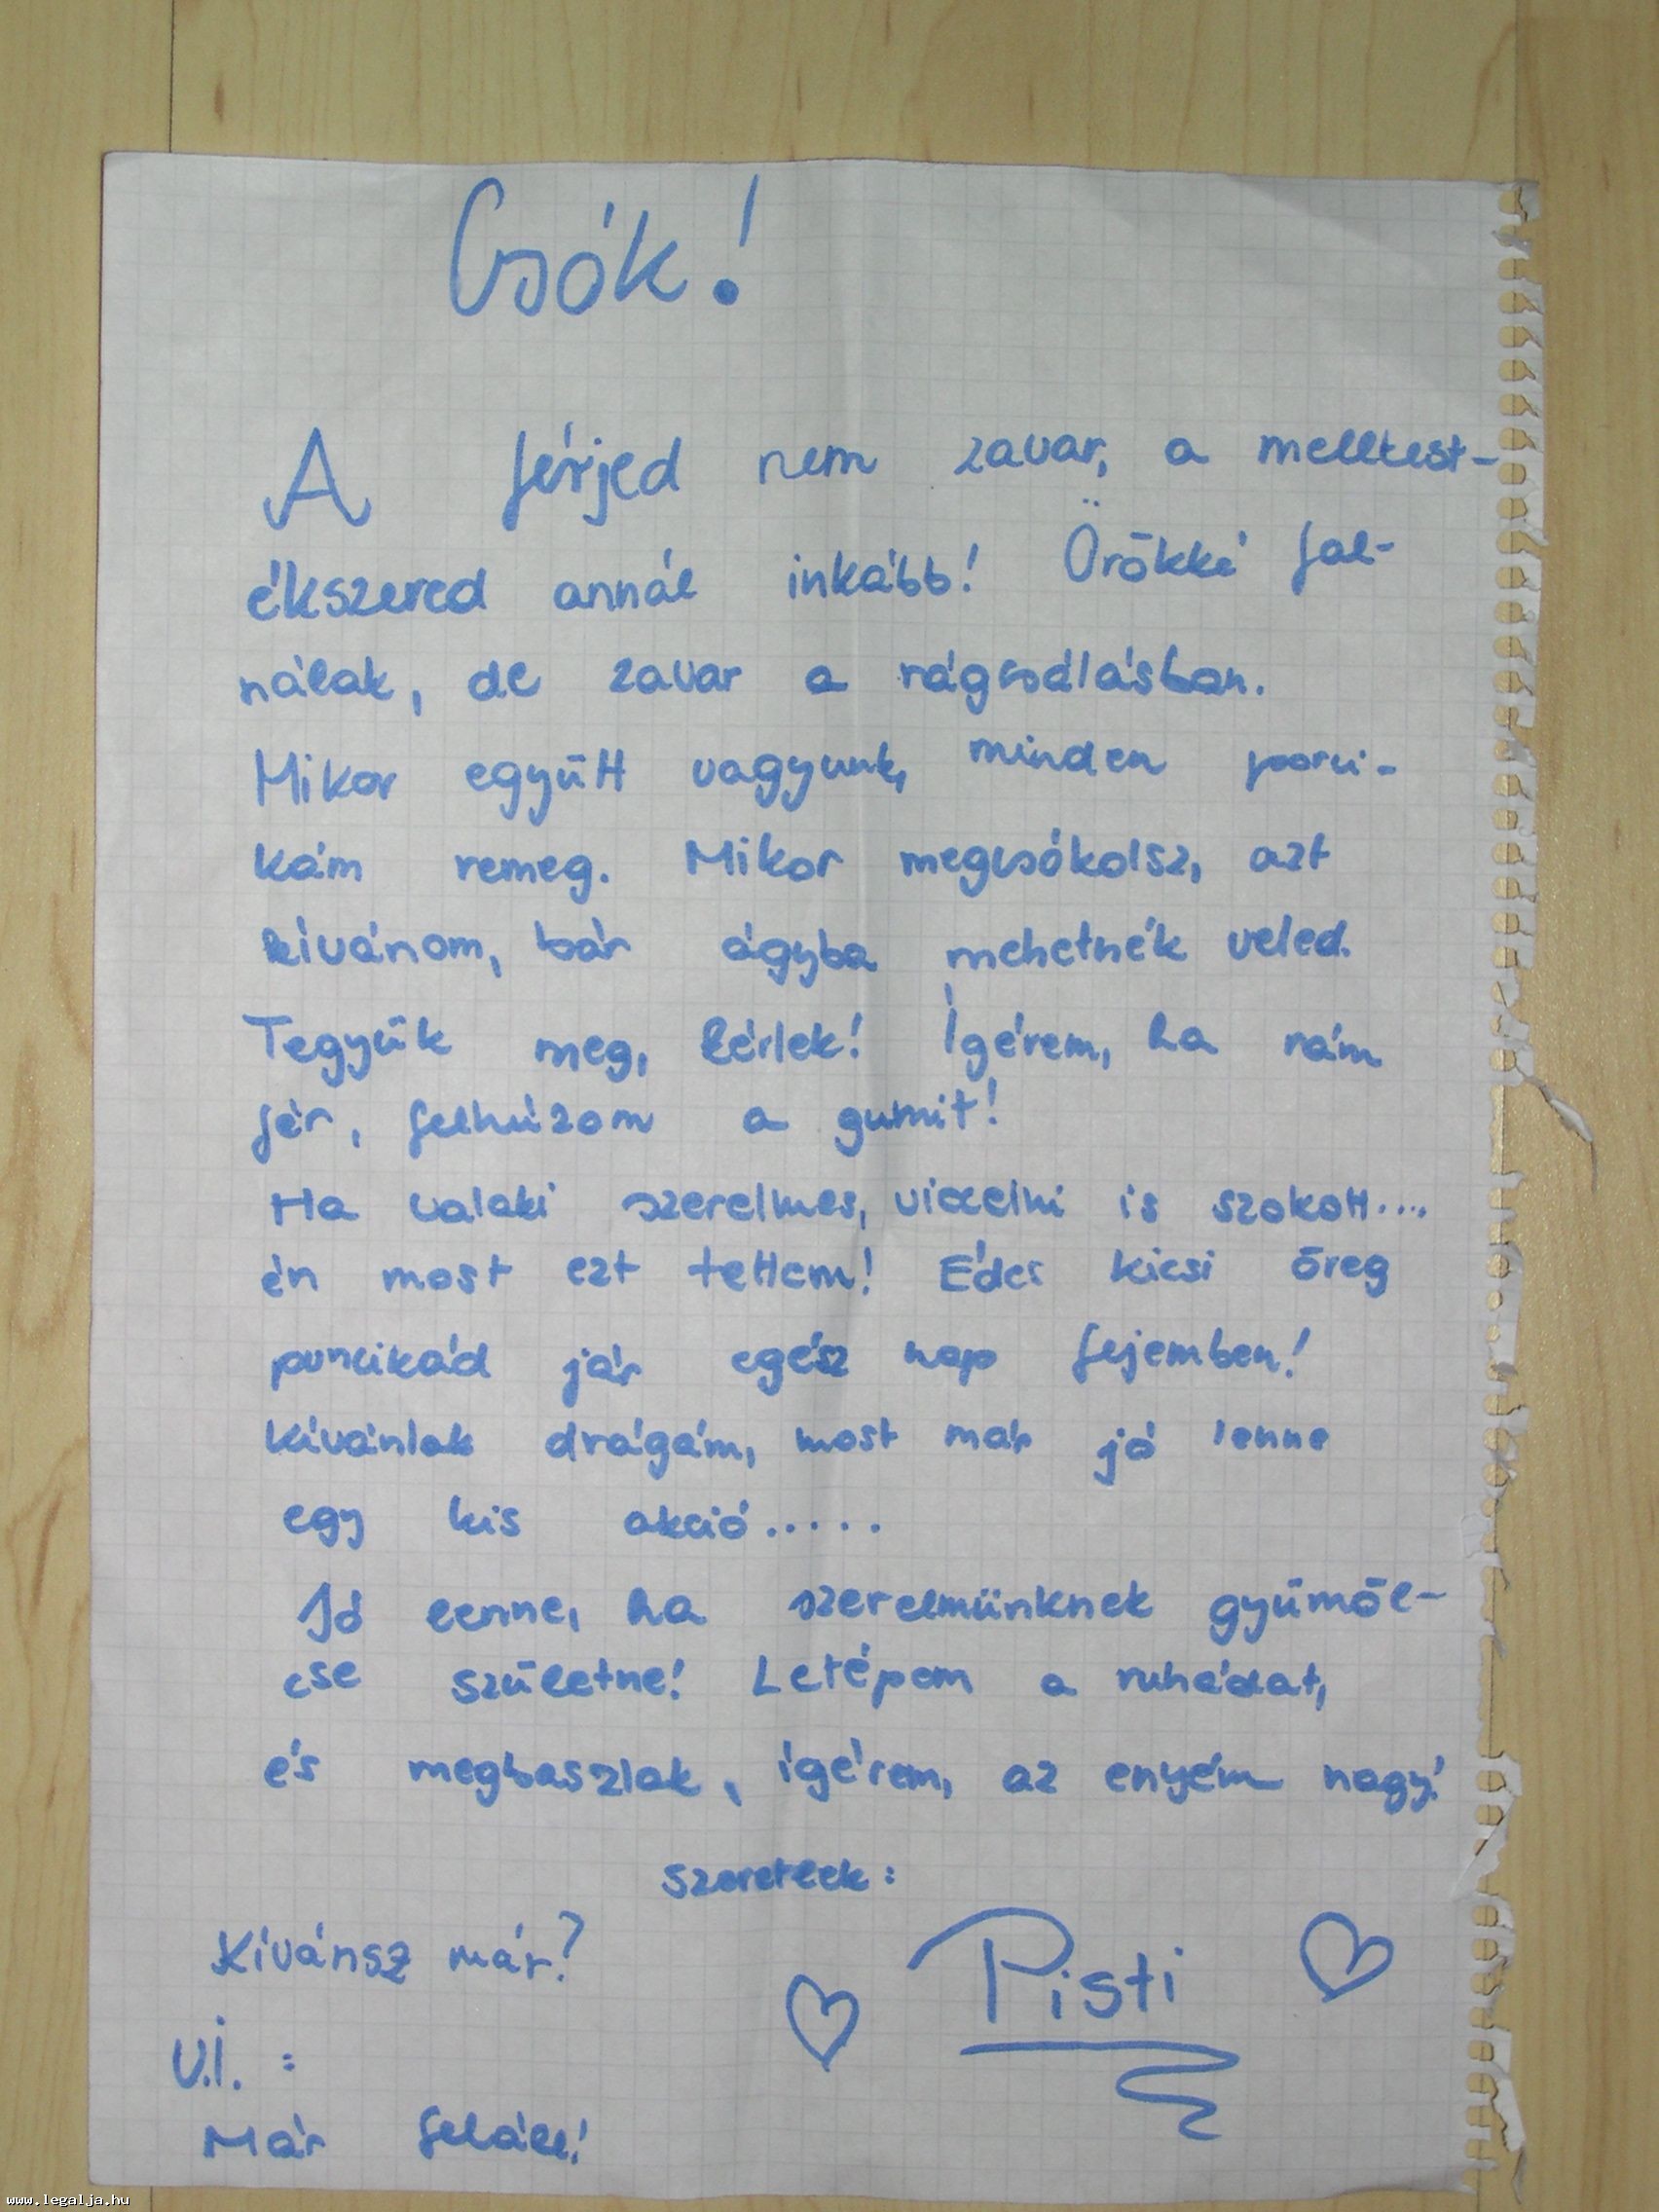 Csók!
A férjed nem zavar, a melltest-
ékszered annál inkább! Örökké fal-
nálak, de zavar a rágcsálásban.
Mikor együtt vagyunk, minden porci-
kám remeg. Mikor megcsókolsz, azt
kívánom, bár ágyba mehetnék veled.
Tegyük meg, kérlek! Ígérem, ha rám
fér, felhúzom a gumit!
Ha valaki szerelmes, viccelni is szokott....
én most ezt tettem! Édes kicsi öreg
puncikád jár egész nap fejemben!
kívánlak drágám, most már jó lenne
egy kis akció.....
Jó lenne, ha szerelmünknek gyümöl-
cse születne! Letépem a ruhádat,
és megbaszlak, ígérem, az enyém nagy!
szeretlek:
Kívánsz már?
Pisti
U.I. :
Már feláll!
www.legalja.hu